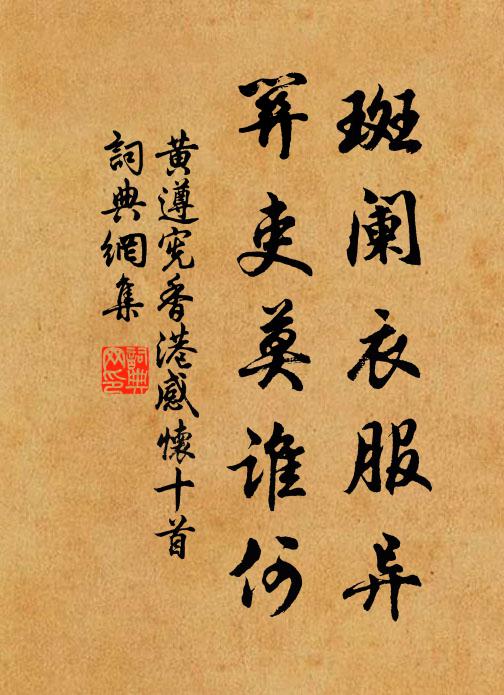 斑阑衣服异
关吏莫谁何
黄遵宪香港感懷十首
詞典網集
詞典
网印